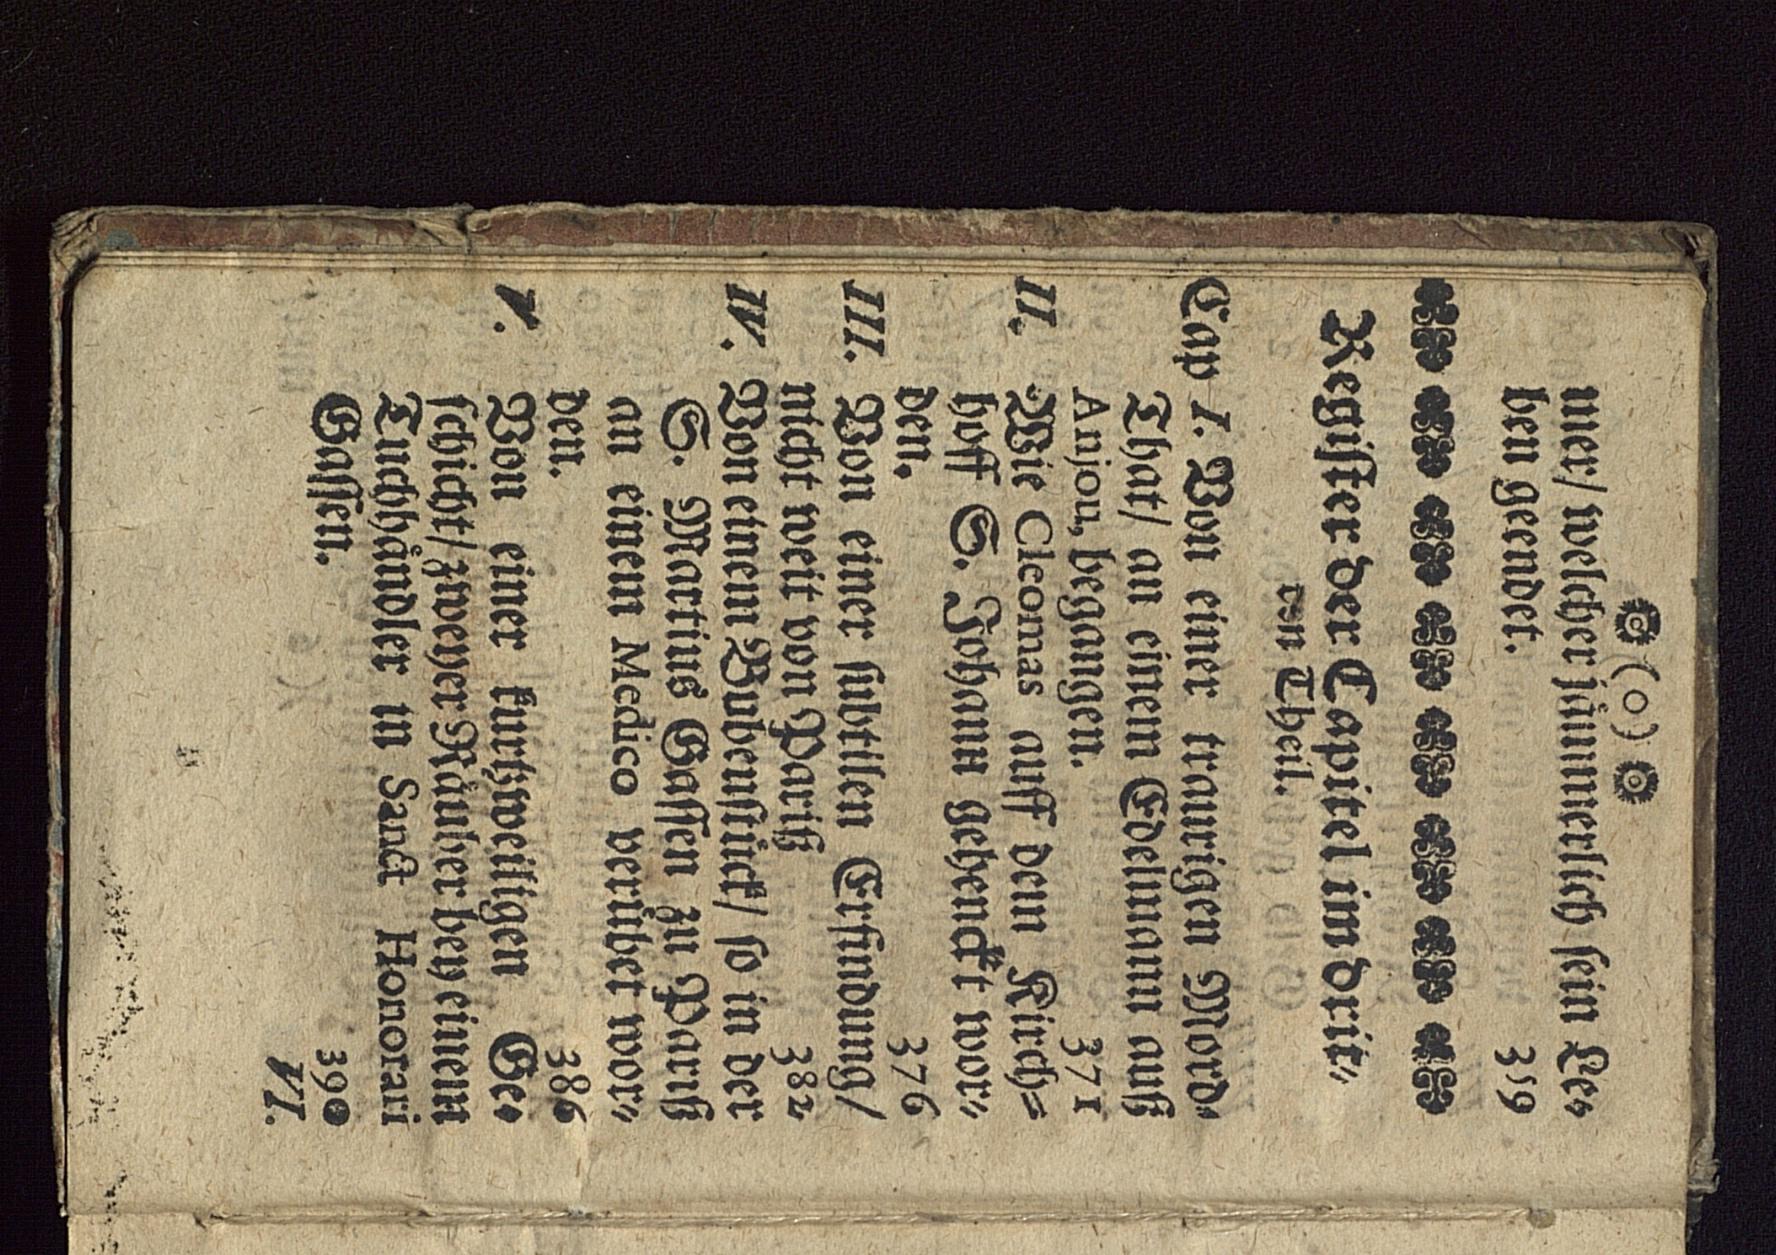 (o)
mer/ welcher jämmerlich sein Le-
ben geendet. 359
Register der Capitel im drit-
ten Theil.
Cap I. Von einer traurigen Mord-
That/ an einem Edelmann auß
Anjou, begangen. 371
II. Wie Cleomas auff dem Kirch-
hoff S. Johann gehenckt wor-
den. 376
III. Von einer subtilen Erfindung/
nicht weit von Pariß 382
IV. Von einem Bubenstück/ so in der
S. Martius Gassen zu Pariß
an einem Medico verübet wor-
den. 386
V. Von einer kurtzweiligen Ge-
schicht/ zweyer Räuber bey einem
Tuchhändler in Sanct Honorari
Gassen. 390
VI.